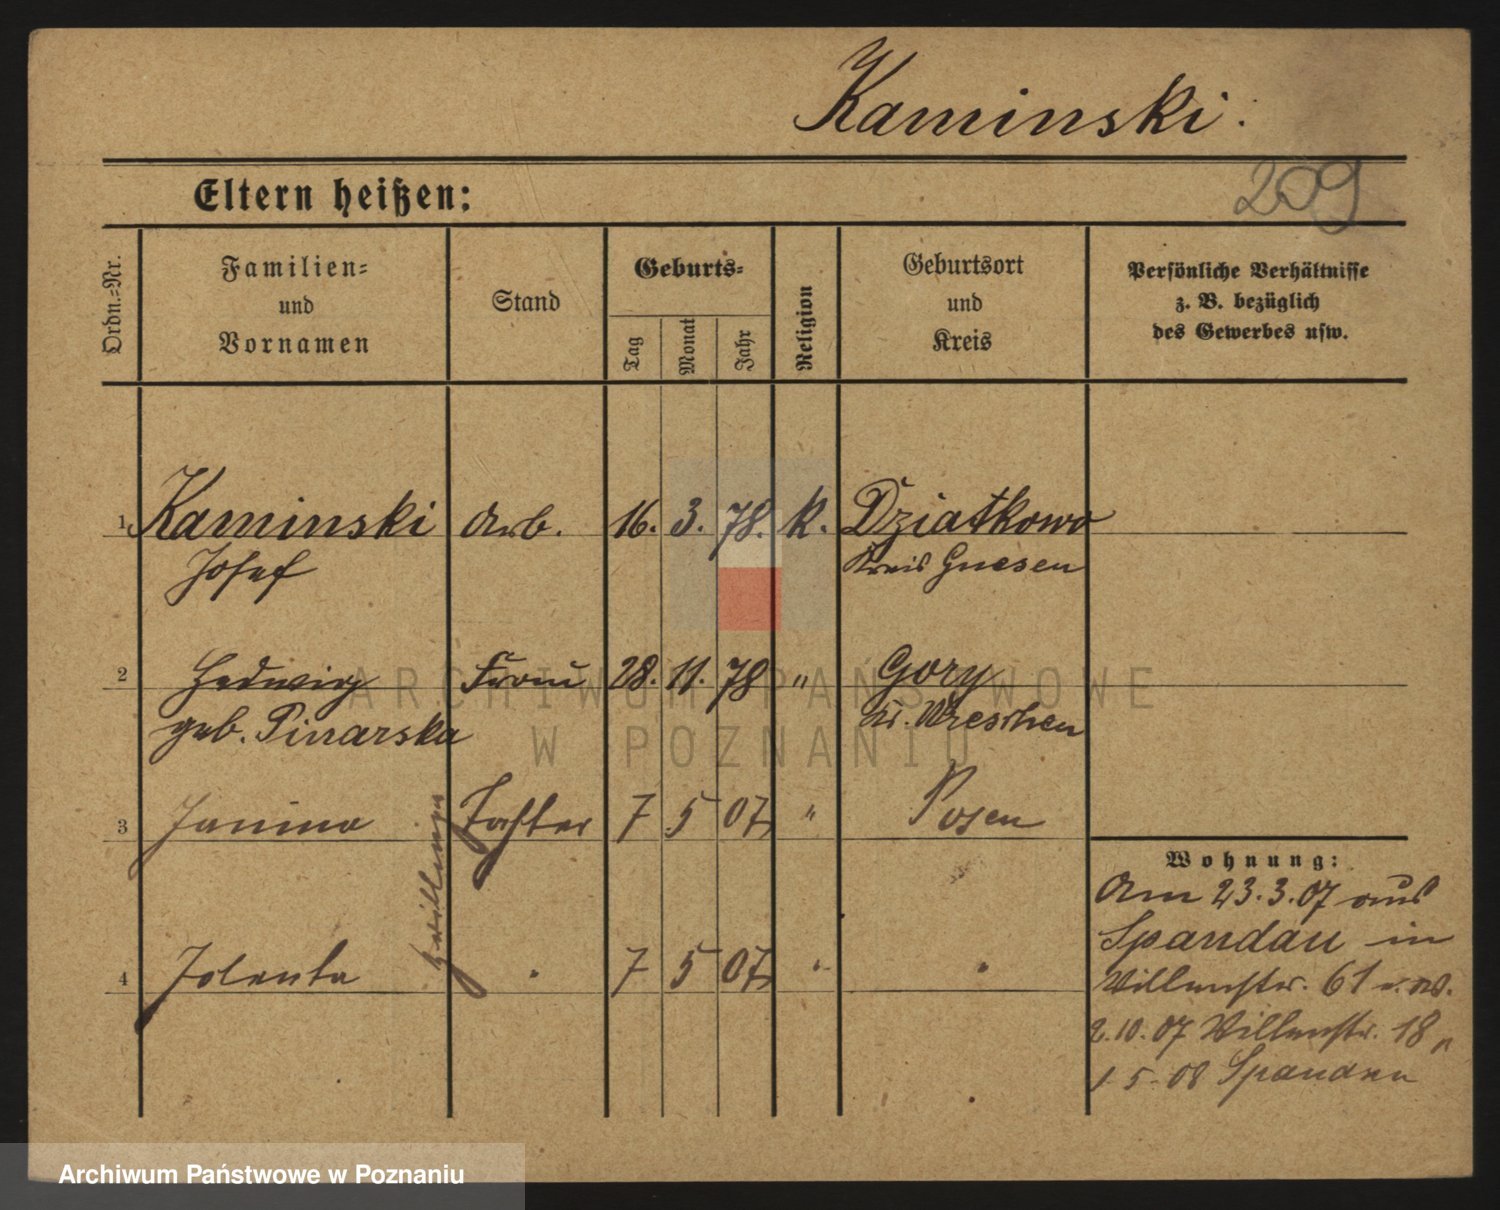 Kaminski.
Eltern heißen:
209
Ordn.-Nr.
Familien-
und
Vornamen
Stand
Geburts-
Tag
Monat
Jahr
Religion
Geburtsort
und
Kreis
Persönliche Verhältnisse
z. B. bezüglich
des Gewerbes usw.
1 Kaminski Arb. 16. 3. 78. K. Dziatkowo
Josef Kreis Gnesen
2 Hedwig Frau 28. 11. 78 " Gory
geb. Pinarska Kr. Wreschen
3 Janina Tochter 7 5 07 " Posen
Zwillinge
4 Jolenta " 7 5 07 " "
Wohnung:
Am 23.3.07 aus
Spandau in
Villenstr. 61
2.10.07 Villenstr. 18
1.5.08 Spandau
ARCHIWUM PAŃSTWOWE
W POZNANIU
Archiwum Państwowe w Poznaniu